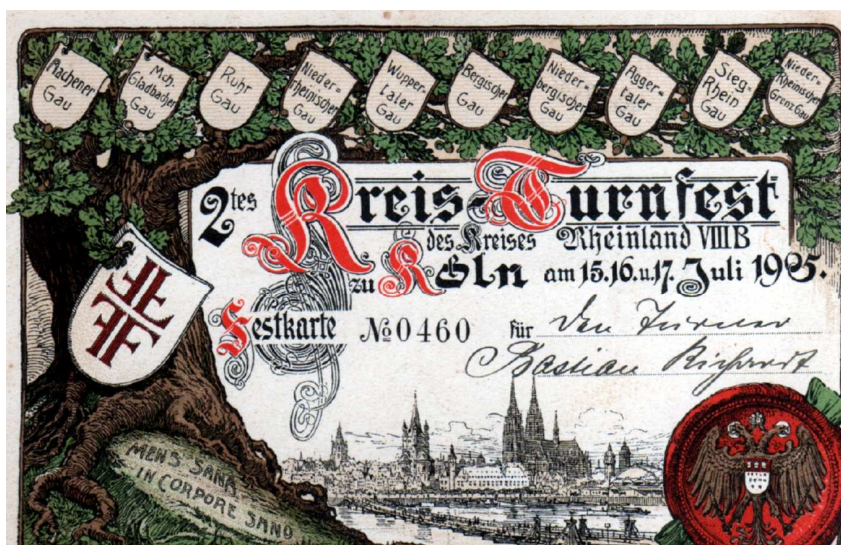 Aachener Gau
Mch. Gladbacher Gau
Ruhr Gau
Nieder= rheinischer Gau
Wupper taler Gau
Bergischer Gau
Nieder= bergischer Gau
Agger= taler Gau
Sieg= Rhein Gau
Nieder= Rheinischer Grenz Gau
2tes Kreis-Turnfest
des Kreises Rheinland VIII B
zu Köln am 15. 16. u. 17. Juli 1905.
Festkarte № 0460 für den Turner
Bastian Richardt
MENS SANA
IN CORPORE SANO